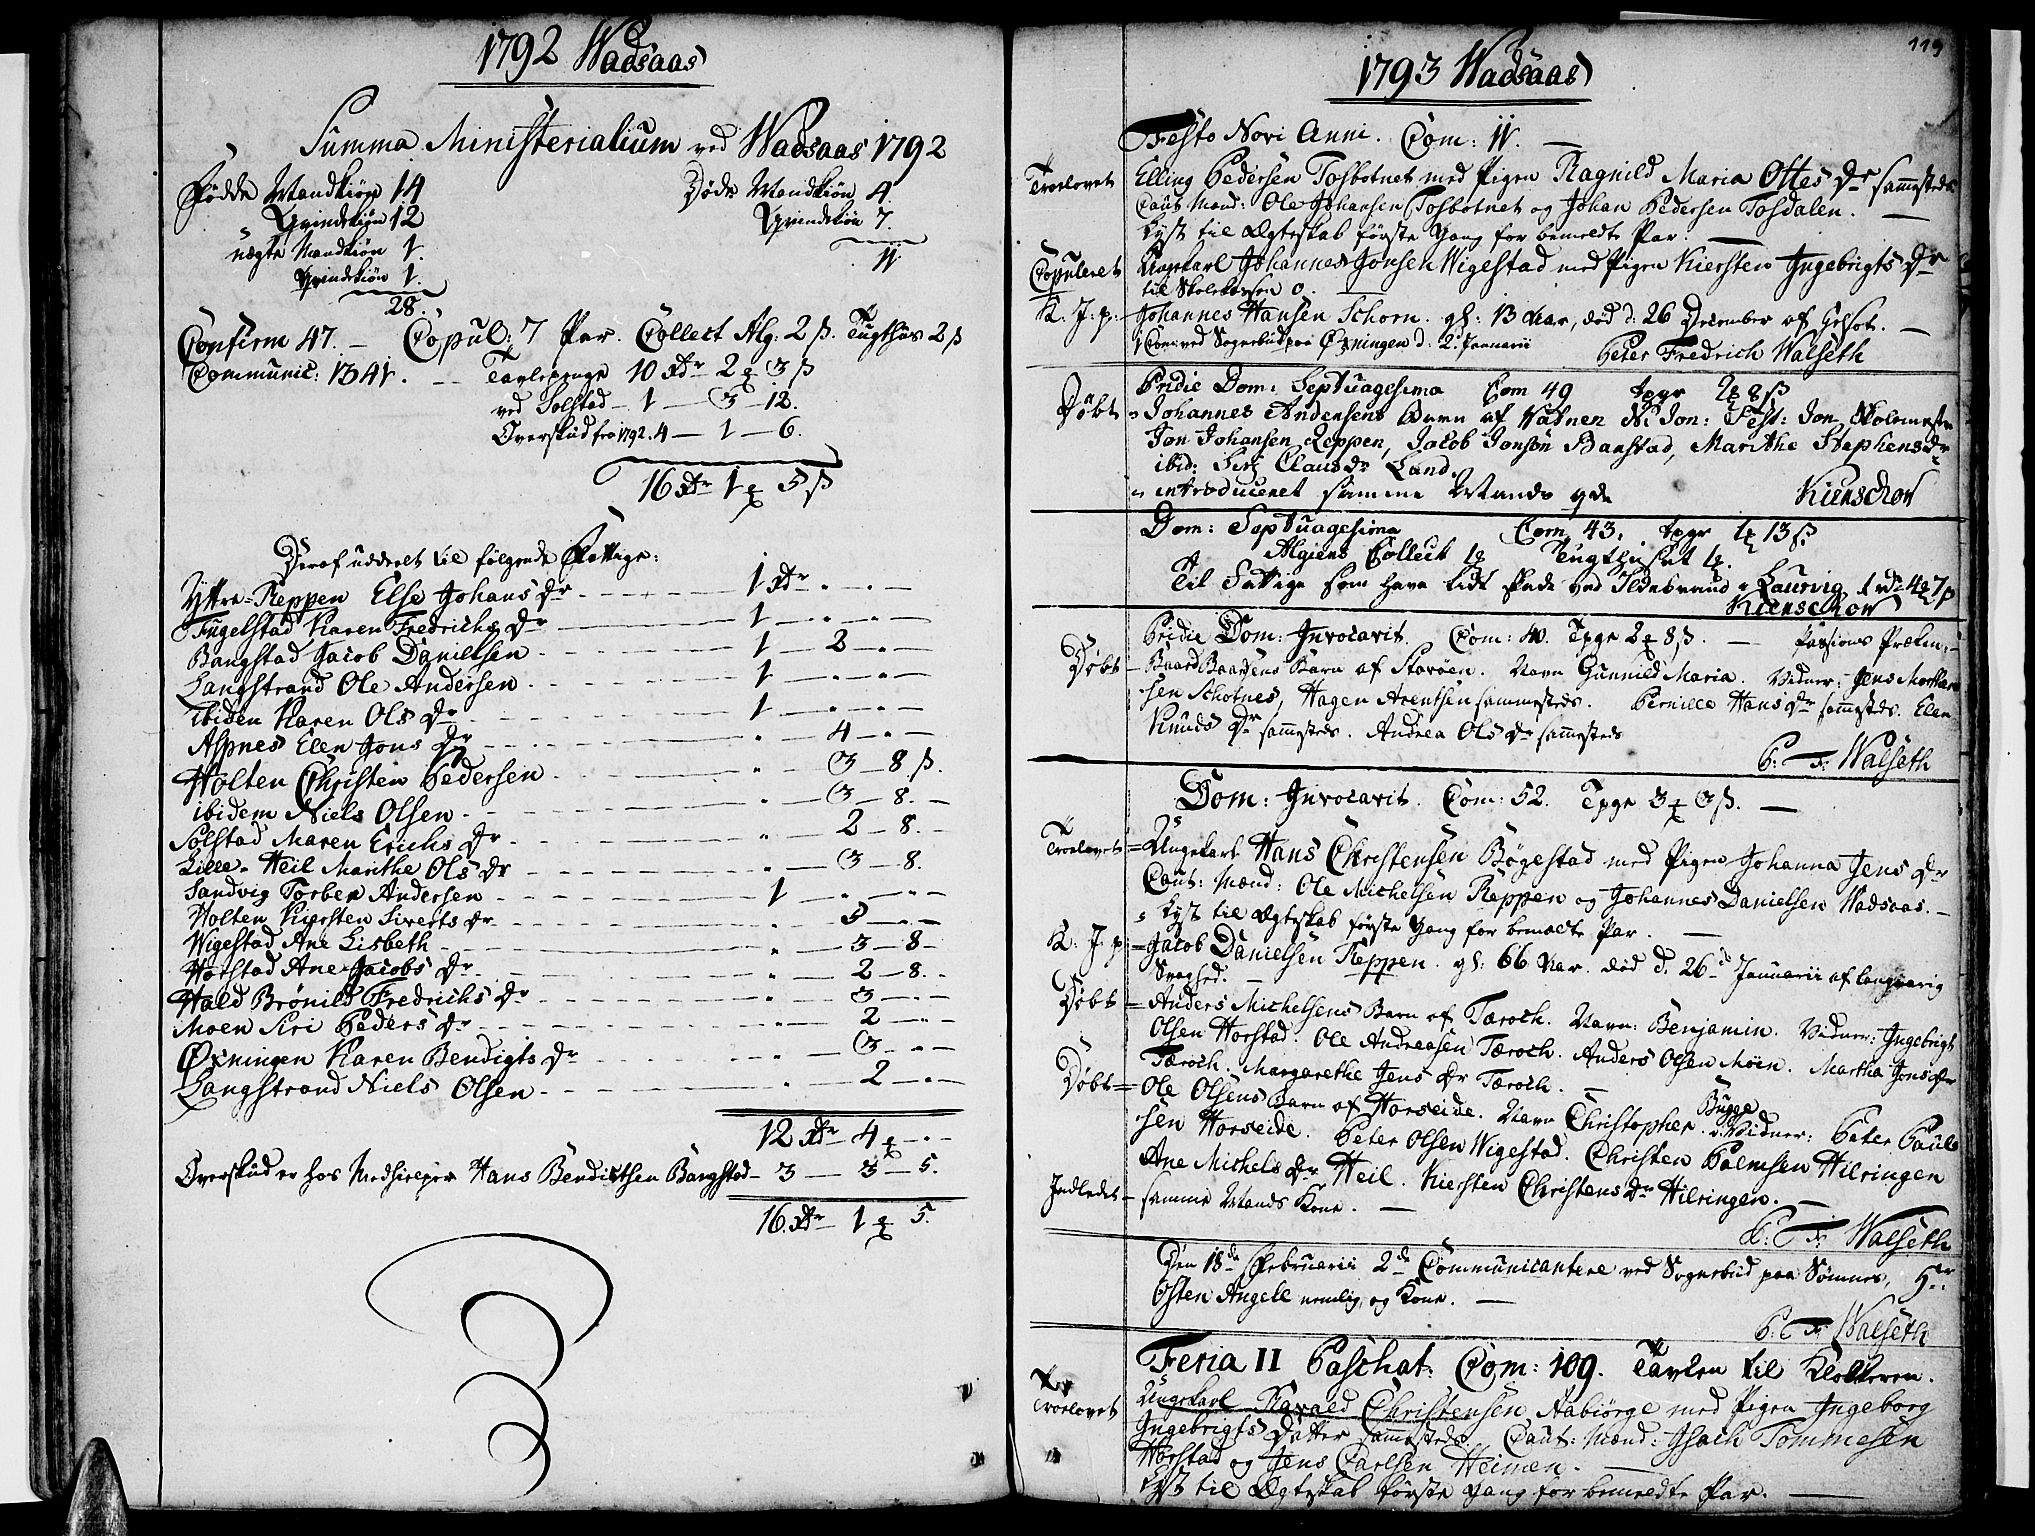 1792 Wadsaas
Summa Ministerialium ved Wadsaas 1792
Fødde Mandkiøn 14
Qvindekiøn 12
uægte Mandkiøn 1.
Qvindekiøn 1.
28.
Døde Mandkiøn 4.
Qvindekiøn 7.
11
Confirm 47. — Copul: 7 Par. Collect Alg: 2 ß. Tugthus 2 ß
Communic: 1341. — Tavlepenge 10 Rdr 2 ꝼ 3 ß
ved Solstad — 1 — 3 — 12.
Overskud fra 1792. 4 — 1 — 6.
16 Rdr 1 ꝼ 5 ß
Deraf uddeelt til følgende Fattige:
Yttre-Reppen Else Johans Dr 1 Rdr
Fugelstad Karen Fredrichs Dr 1
Bangstad Jacob Danielsen 1 — 2
Langstrand Ole Andersen 1
ibiden Karen Ols Dr 1
Alpnes Elen Jons Dr 4
Holten Christen Pedersen 3 — 8 ß.
ibidem Niels Olsen 3 — 8.
Solstad Maren Erichs Dr 2 — 8.
Lille-Heil Marithe Ols Dr 3 — 8.
Sandvig Torber Andersen 1
Holten Kiersten Siverts Dr 5
Wigestad Ane Lisbeth 3 — 8
Horstad Ane Jacobs Dr 2 — 8.
Hald Brønild Fredrichs Dr 3
Moen Siri Peders Dr 2
Øxningen Karen Bendigts Dr 3
Langstrand Niels Olsen 2
12 Rdr 4 ꝼ
Overskud er hos Medhielper Hans Bendicthsen Bangstad — 3 — 3 — 5.
16 Rdr 1 ꝼ 5.
119
1793 Wadsaas
Festo Novi Anni. Com: 11.
Troelovet Elling Pedersen Tosbotnet med Pigen Ragnild Maria Ottes Dr sammesteds
Caut: Mænd: Ole Johansen Tosbotnet og Johan Pedersen Tosdalen.
Lyst til Ægteskab første Gang for bemeldte Par.
Copuleret Ungekarl Johannes Jonsen Wigestad med Pigen Kiersten Ingebrigts Dr
til Skolekassen 0.
K. J. p: Johannes Hansen Schorn. gl: 13 Aar, død d: 26 December af
1 Com: ved Sognebud paa Øxningen d: 2 Januarii
Peter Fredrich Walseth
Pridie Dom: Septuagesima Com 49 tpgr 2 ꝼ 8 ß
Døbt Johannes Andersens Barn af Vatnen N: Jon: Test: Jon Skolemester
Jon Johansen Reppen, Jacob Jonsøn Banstad, Marithe Stephens Dr
ibid: Claus Dr Land.
introduceret samme Mands
Kienschow
Dom: Septuagesima Com 43. tpgr 1 ꝼ 13 ß
Algiens Collect 1 ꝼ Tugthuset 1 ꝼ.
Til Fattige som have lidt Skade ved Ildebrand i Laurvig 1 rdr 4 ꝼ 7 ß
Kienschow
Pridie Dom: Invocavit. Com: 40. Tpgr 2 ꝼ 8 ß. — Passions Præken
Døbt Baard Baardsens Barn af Storøen. Navn Gunnild Maria. Vidner: Jens Morten
sen Schotnes, Hagen Arentsen sammesteds. Pernille Hans Dr sammesteds. Elen
Knuds Dr sammesteds. Andrea Ols Dr sammesteds
P: F: Walseth
Dom: Invocavit. Com: 52. Tpgr 3 ꝼ 3 ß.
Troelovet Ungekarl Hans Christensen Bøgestad med Pigen Johanna Jens Dr
Caut: Mænd: Ole Michelsen Reppen og Johannes Danielsen Wadsaas.
Lyst til Ægteskab første Gang for bemeldte Par.
K: J: p: Jacob Danielsen Reppen. gl: 66 Aar. død d. 26 Januarii af langvarig
Svaghed.
Døbt Anders Michelsens Barn af Tæroch. Navn: Benjamin. Vidner: Ingebrigt
Olsen Horstad. Ole Andreasen Tæroch. Anders Olsen Moen. Martha Jons Dr
Tæroch. Margarethe Jens Dr Tæroch.
Døbt Ole Olsens Barn af Horseide. Navn Christopher Bugge. Vidner: Peter Paul
sen Horseide. Peter Olsen Wigestad. Christen Palmsen Hilringen
Ane Michels Dr Heil. Kiersten Christens Dr Hilringen.
Indledet samme Mands Kone.
P: F: Walseth
Den 18de Februarii 2de Communicantere ved Sognebud paa Sømnes,
Osten Angell nemlig, og Kone.
P: F: Walseth
Feria II Paschat: Com: 109. Tavlen til Klokkeren.
Troelovet Ungekarl Harald Christensen Aabiørge med Pigen Ingeborg
Ingebrigts Datter sammesteds. Caut: Mænd: Isach Tommesen
Horstad og Jens Carlsen Heimen.
Lyst til Ægteskab første Gang for bemeldte Par.